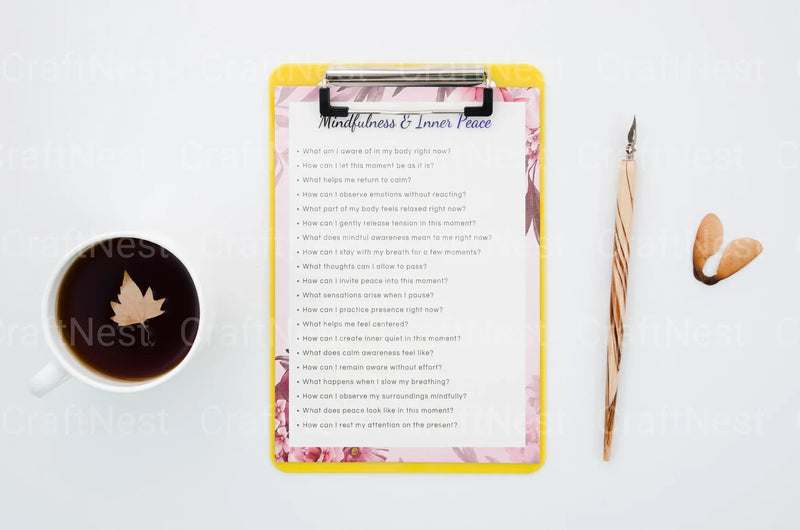 Mindfulness & Inner Peace
• What am I aware of in my body right now?
• How can I let this moment be as it is?
• What helps me return to calm?
• How can I observe emotions without reacting?
• What part of my body feels relaxed right now?
• How can I gently release tension in this moment?
• What does mindful awareness mean to me right now?
• How can I stay with my breath for a few moments?
• What thoughts can I allow to pass?
• How can I invite peace into this moment?
• What sensations arise when I pause?
• How can I practice presence right now?
• What helps me feel centered?
• How can I create inner quiet in this moment?
• What does calm awareness feel like?
• How can I remain aware without effort?
• What happens when I slow my breathing?
• How can I observe my surroundings mindfully?
• What does peace look like in this moment?
• How can I rest my attention on the present?
CraftNest